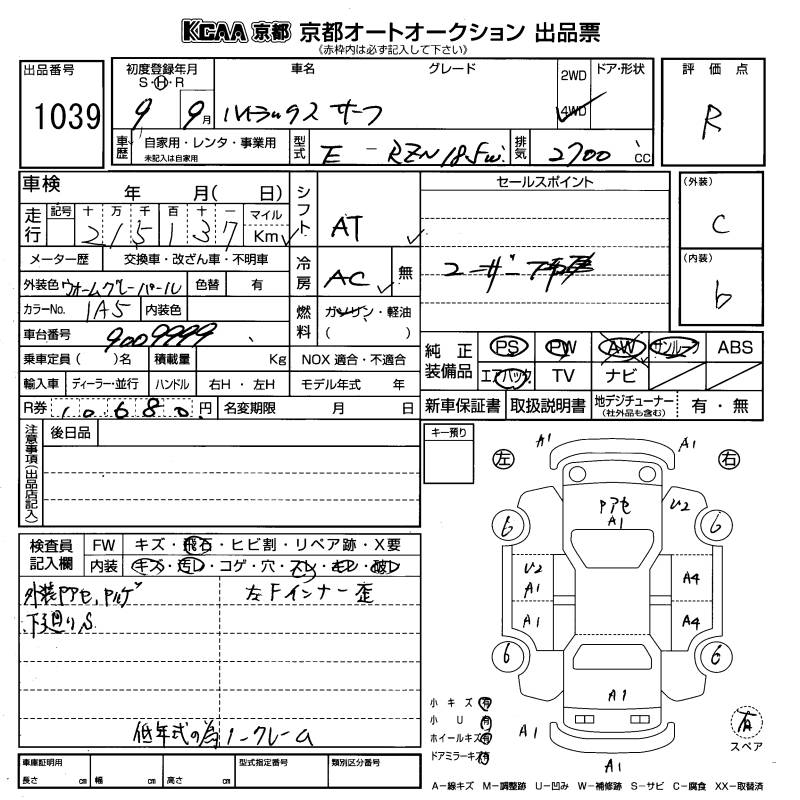 KCAA 京都 京都オートオークション 出品票
《赤枠内は必ず記入して下さい》
出品番号 1039
初度登録年月 S・H・R 9 9月
車名 グレード ハイラックス サーフ
2WD 4WD ドア・形状
評価点 R
車歴 自家用・レンタ・事業用 未記入は自家用
型式 E - RZN185W
排気 2700 CC
車検 年 月( 日)
シフト AT
セールスポイント
(外装) C
走行 記号 十 万 千 百 十 一 マイル Km
215137
メーター歴 交換車・改ざん車・不明車
冷房 AC 無
ユーザー
(内装) b
外装色 ウォームグレーパール 色替 有
カラーNo. 1A5 内装色
燃料 ガソリン・軽油 ( )
車台番号 9009999
乗車定員( )名 積載量 Kg NOX 適合・不適合
純正装備品 PS PW AW サンルーフ ABS
エアバック TV ナビ
輸入車 ディーラー・並行 ハンドル 右H・左H モデル年式 年
R券 10680円 名変期限 月 日
新車保証書 取扱説明書 地デジチューナー (社外品も含む) 有・無
注意事項(出品店記入) 後日品
キー預り
左 右
A1 A1
Pアセ A1 U2
6 6
U2 A1 A4
A1 A4
6 6
A1
A1 A1
検査員記入欄 FW キズ・飛石・ヒビ割・リペア跡・X要
内装 キズ・汚レ・コゲ・穴・スレ・モレ・破レ
外装Pアセ、
左Fインナー歪
下廻りS
低年式の為ノークレーム
小キズ 有
小U 有
ホイールキズ 有
ドアミラーキズ 有
有 スペア
車庫証明用 長さ cm 幅 cm 高さ cm 型式指定番号 類別区分番号
A-線キズ M-調整跡 U-凹み W-補修跡 S-サビ C-腐食 XX-取替済